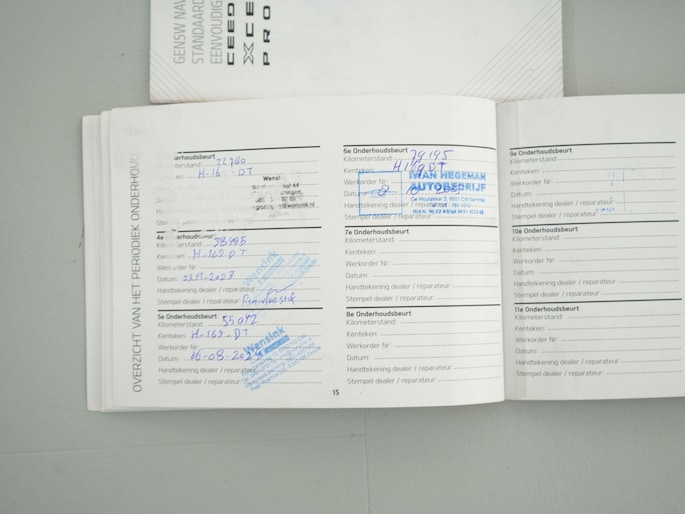 GEN5W NAV
STANDAARD
EENVOUDIG
CEED
XCE
PRO
OVERZICHT VAN HET PERIODIEK ONDERHOUD
erhoudsbeurt
erstand 22.780
H-16 -DT
Wens
4e onderhoudsbeurt
Kilometerstand 38.495
Kenteken: H-169-DT
Werkorder Nr:
Datum: 23-11-2023
Handtekening dealer / reparateur
Stempel dealer / reparateur:
Wensink
5e Onderhoudsbeurt
Kilometerstand: 55042
Kenteken: H-169-DT
Werkorder Nr:
Datum: 06-08-2024
Handtekening dealer / reparateur:
Stempel dealer / reparateur:
Wensink
6e Onderhoudsbeurt
Kilometerstand: 79195
Kenteken: H169DT
Werkorder Nr:
Datum:
Handtekening dealer
Stempel dealer
IWAN HEGEMAN
AUTOBEDRIJF
7e Onderhoudsbeurt
Kilometerstand:
Kenteken:
Werkorder Nr:
Datum:
Handtekening dealer / reparateur:
Stempel dealer / reparateur:
8e Onderhoudsbeurt
Kilometerstand:
Kenteken:
Werkorder Nr:
Datum:
Handtekening dealer / reparateur:
Stempel dealer / reparateur:
15
9e Onderhoudsbeurt
Kilometerstand:
Kenteken:
Werkorder Nr:
Datum:
Handtekening dealer / reparateur:
Stempel dealer / reparateur:
10e Onderhoudsbeurt
Kilometerstand:
Kenteken:
Werkorder Nr:
Datum:
Handtekening dealer / reparateur:
Stempel dealer / reparateur:
11e Onderhoudsbeurt
Kilometerstand:
Kenteken:
Werkorder Nr:
Datum:
Handtekening dealer / reparateur:
Stempel dealer / reparateur: